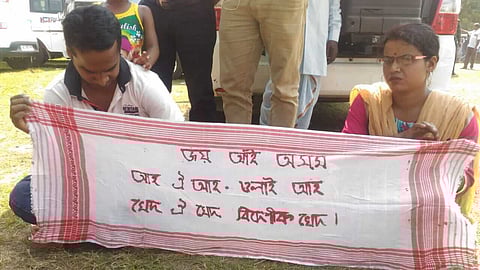 জয় আই অসম
আহ ঐ আহ - ওলাই আহ
খেদ ঐ খেদ বিদেশীক খেদ ।